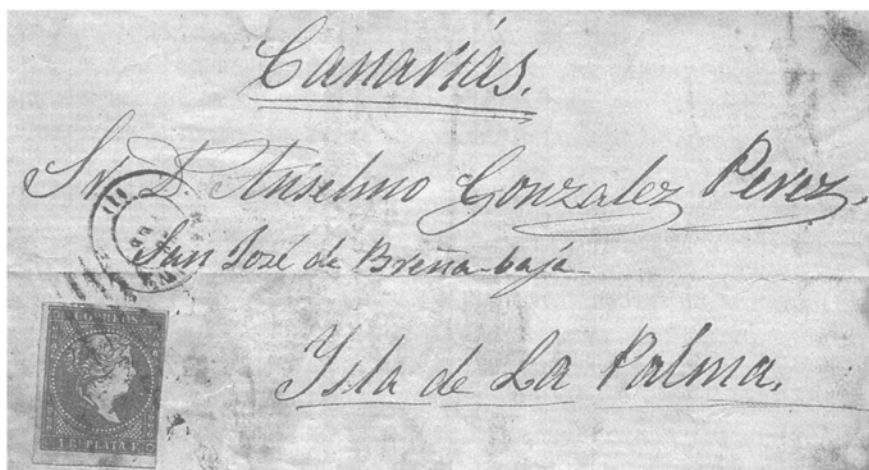 Canarias.
Sr. D. Anselmo Gonzalez Perez.
San José de Breña-baja
Isla de La Palma.
CORREOS
1 Rl. PLATA F.